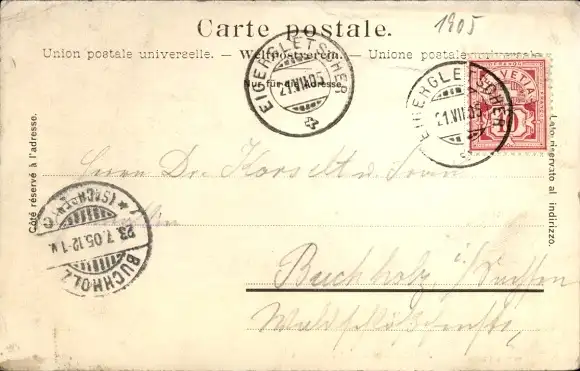 Carte postale.
1905
Union postale universelle. — Weltpostverein. — Unione postale universale
Nur für die Adresse.
EIGERGLETSCHER
21.VII.05
EIGERGLETSCHER
21.VII.05
HELVETIA
Côté réservé à l'adresse.
Lato riservato al indirizzo.
Herrn Dr. Korselt u. Frau
BUCHHOLZ (SACHSEN) C
23.7.05.12-1N.
Buchholz i/Sachsen